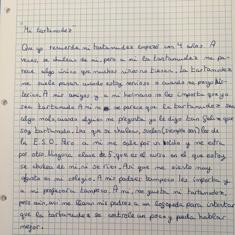 Mi tartamudez
Que yo recuerde mi tartamudez empezó con 4 años. A
veces, se burlan de mi, pero a mi la tartamudez me pa-
rece algo único que muchos niños no tienen. La tartamudez
me suele pasar cuando estoy nervioso o cuando me pongo his-
térico. A mis amigos y a mi hermano no les importa que yo
sea tartamudo. A mi me parece que la tartamudez es
algo más, cuando alguien me pregunta yo le digo tan feliz que
soy tartamudo. Los que se burlan, suelen (siempre son) los de
la E.S.O. Pero a mi me sale por un oído y me entra
por otro. Ninguna clase de 5, que es el curso en el que estoy
se burlan de mi ni se ríen. Así que me siento muy
a gusto en mi colegio. A mis padres tampoco les importa y
a mi profesora tampoco. A mi, me gusta mi tartamudez,
pero aún así me llevan mis padres a un logopeda para intentar
que la tartamudez se controle un poco y pueda hablar
mejor.